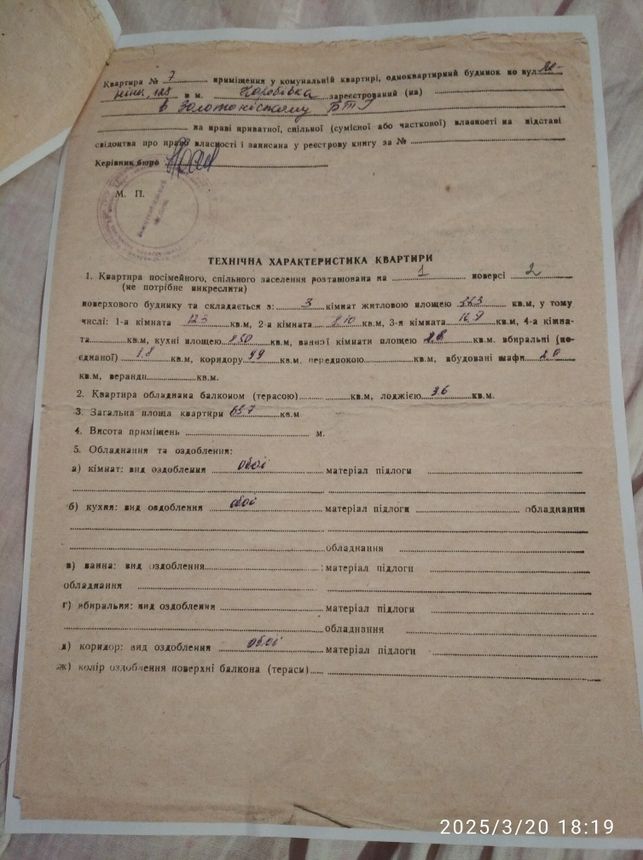 Квартира № 7 приміщення у комунальній квартирі, одноквартирний будинок по вул. Ле-
ніна, 128 в м. Коробівка зареєстрований (на)
в Золотоніському БТІ
на праві приватної, спільної (сумісної або часткової) власності на підставі
свідоцтва про право власності і записана у реєстрову книгу за №
Керівник бюро
М. П.
ТЕХНІЧНА ХАРАКТЕРИСТИКА КВАРТИРИ
1. Квартира посімейного, спільного заселення розташована на 1 поверсі 2
(не потрібне викреслити)
поверхового будинку та складається з: 3 кімнат житловою площею кв.м, у тому
числі: 1-а кімната 12.3 кв.м, 2-а кімната кв.м, 3-я кімната 16.9 кв.м, 4-а кімна-
та кв.м, кухні площею 8.50 кв.м, ванної кімнати площею 2.8 кв.м. вбиральні (по-
єднаної) 1.8 кв.м, коридору кв.м. передпокою кв.м, вбудовані шафи 2.0
кв.м, веранди кв.м.
2. Квартира обладнана балконом (терасою) кв.м, лоджією 3.6 кв.м.
3. Загальна площа квартири 65.7 кв.м
4. Висота приміщень м.
5. Обладнання та оздоблення:
а) кімнат: вид оздоблення обої матеріал підлоги
б) кухня: вид оздоблення обої матеріал підлоги обладнання
обладнання
в) ванна: вид оздоблення : матеріал підлоги
обладнання
г) вбиральня: вид оздоблення матеріал підлоги
обладнання
д) коридор: вид оздоблення обої матеріал підлоги
ж) колір оздоблення поверхні балкона (тераси)
2025/3/20 18:19